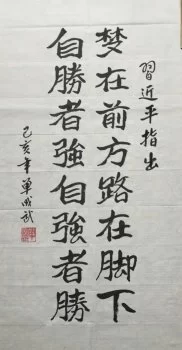 習近平指出
梦在前方路在脚下
自勝者強自強者勝
己亥年單成武